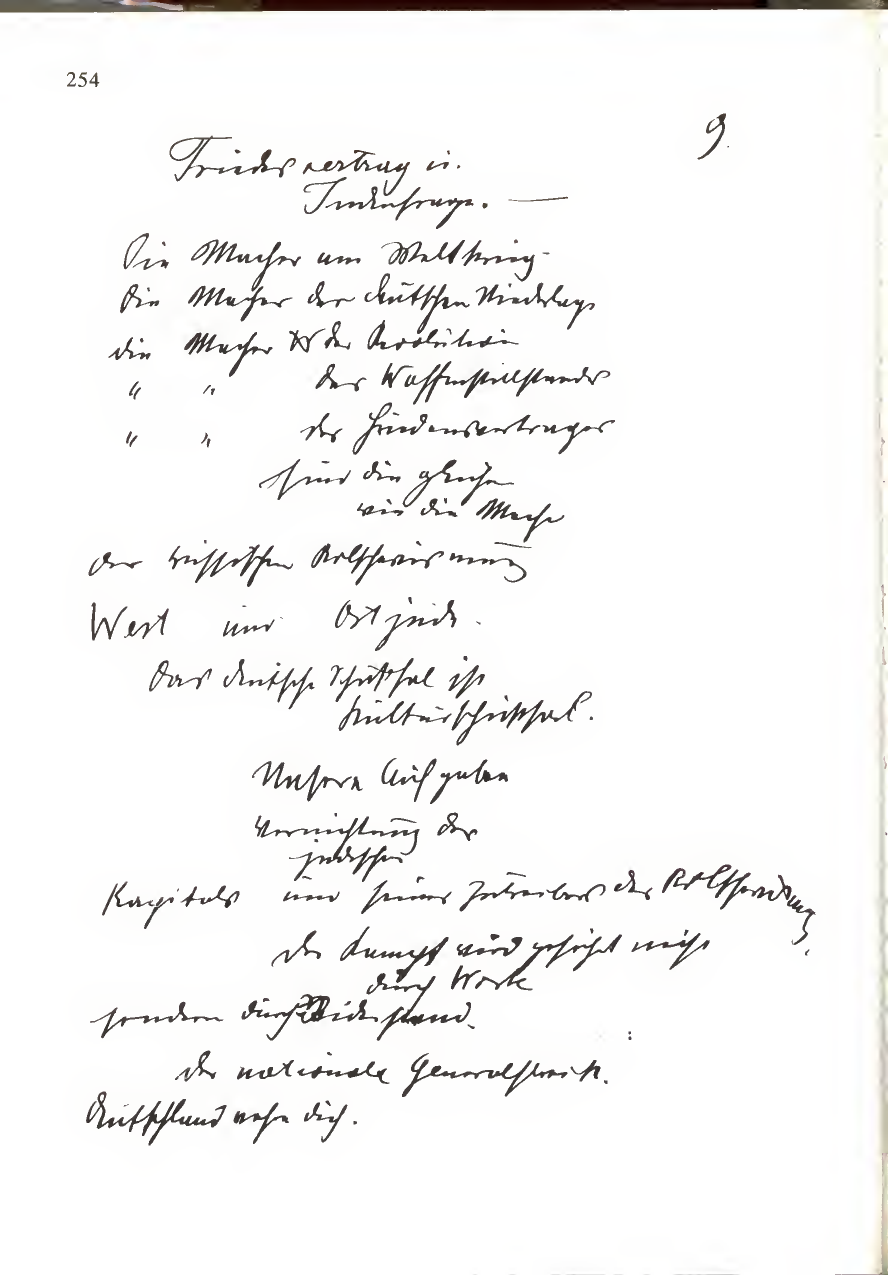 254
9.
Friedesvertrag u.
Judenfrage. —
Die Macher am Weltkrieg
Die Macher der deutschen Niederlage
die Macher der Revolution
" " des Waffenstillstandes
" " des Friedensvertrages
sind die gleichen
wie die Mache
der russischen Bolschewisierung
West und Ostjude.
Das deutsche Schicksal ist
Kulturschicksal.
Unsere Aufgaben
Vernichtung des
jüdischen
Kapitals und seiner Zutreiber der Bolschewisierung.
der Kampf wird geführt nicht
durch Worte
sondern durch Widerstand.
der nationale Generalstreik.
Deutschland wehre dich.